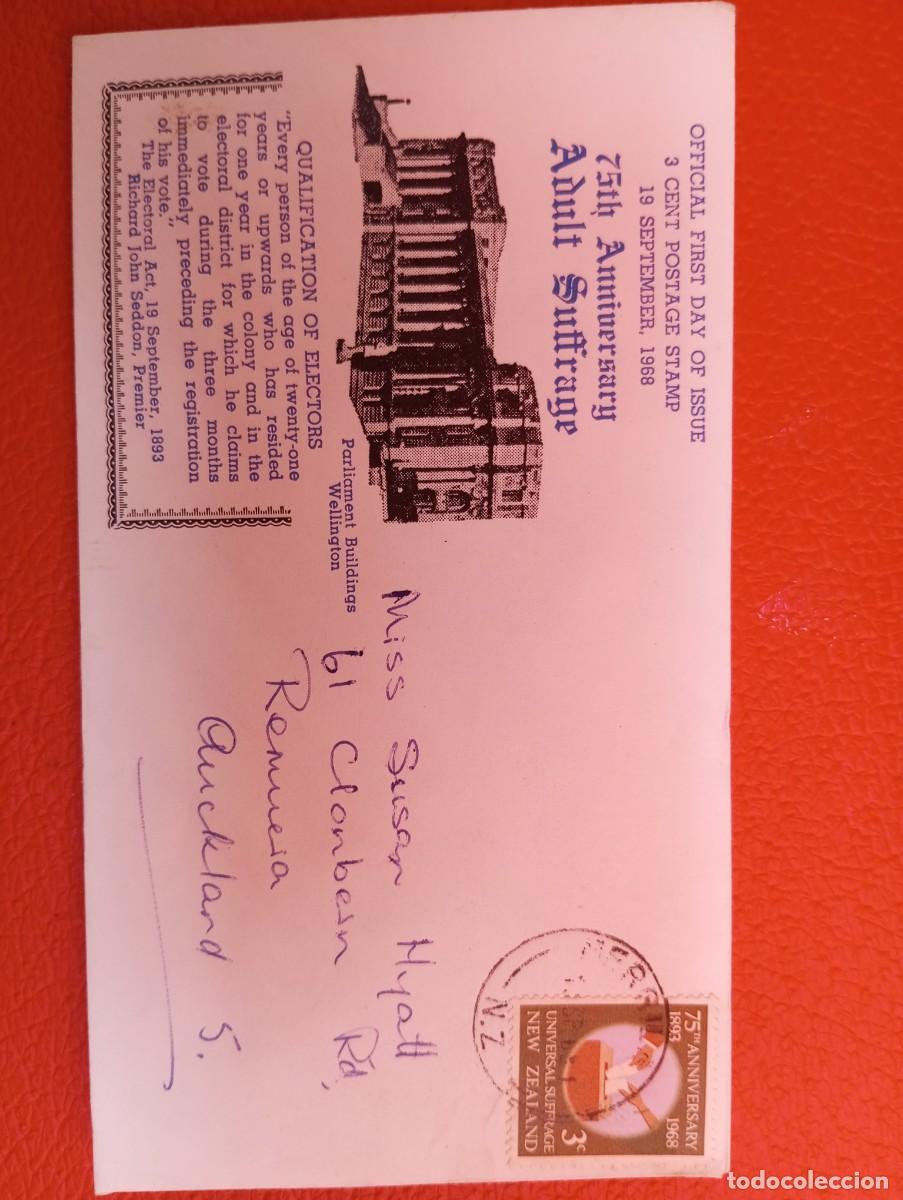 OFFICIAL FIRST DAY OF ISSUE
3 CENT POSTAGE STAMP
19 SEPTEMBER, 1968
75th Anniversary
Adult Suffrage
Parliament Buildings
Wellington
QUALIFICATION OF ELECTORS
"Every person of the age of twenty-one
years or upwards who has resided
for one year in the colony and in the
electoral district for which he claims
to vote during the three months
immediately preceding the registration
of his vote."
The Electoral Act, 19 September, 1893
Richard John Seddon, Premier
75TH ANNIVERSARY
1893 1968
3c
UNIVERSAL SUFFRAGE
NEW ZEALAND
N.Z.
Miss Susan Hyatt
61 Clonbern Rd,
Remuera
Auckland 5.
todocoleccion